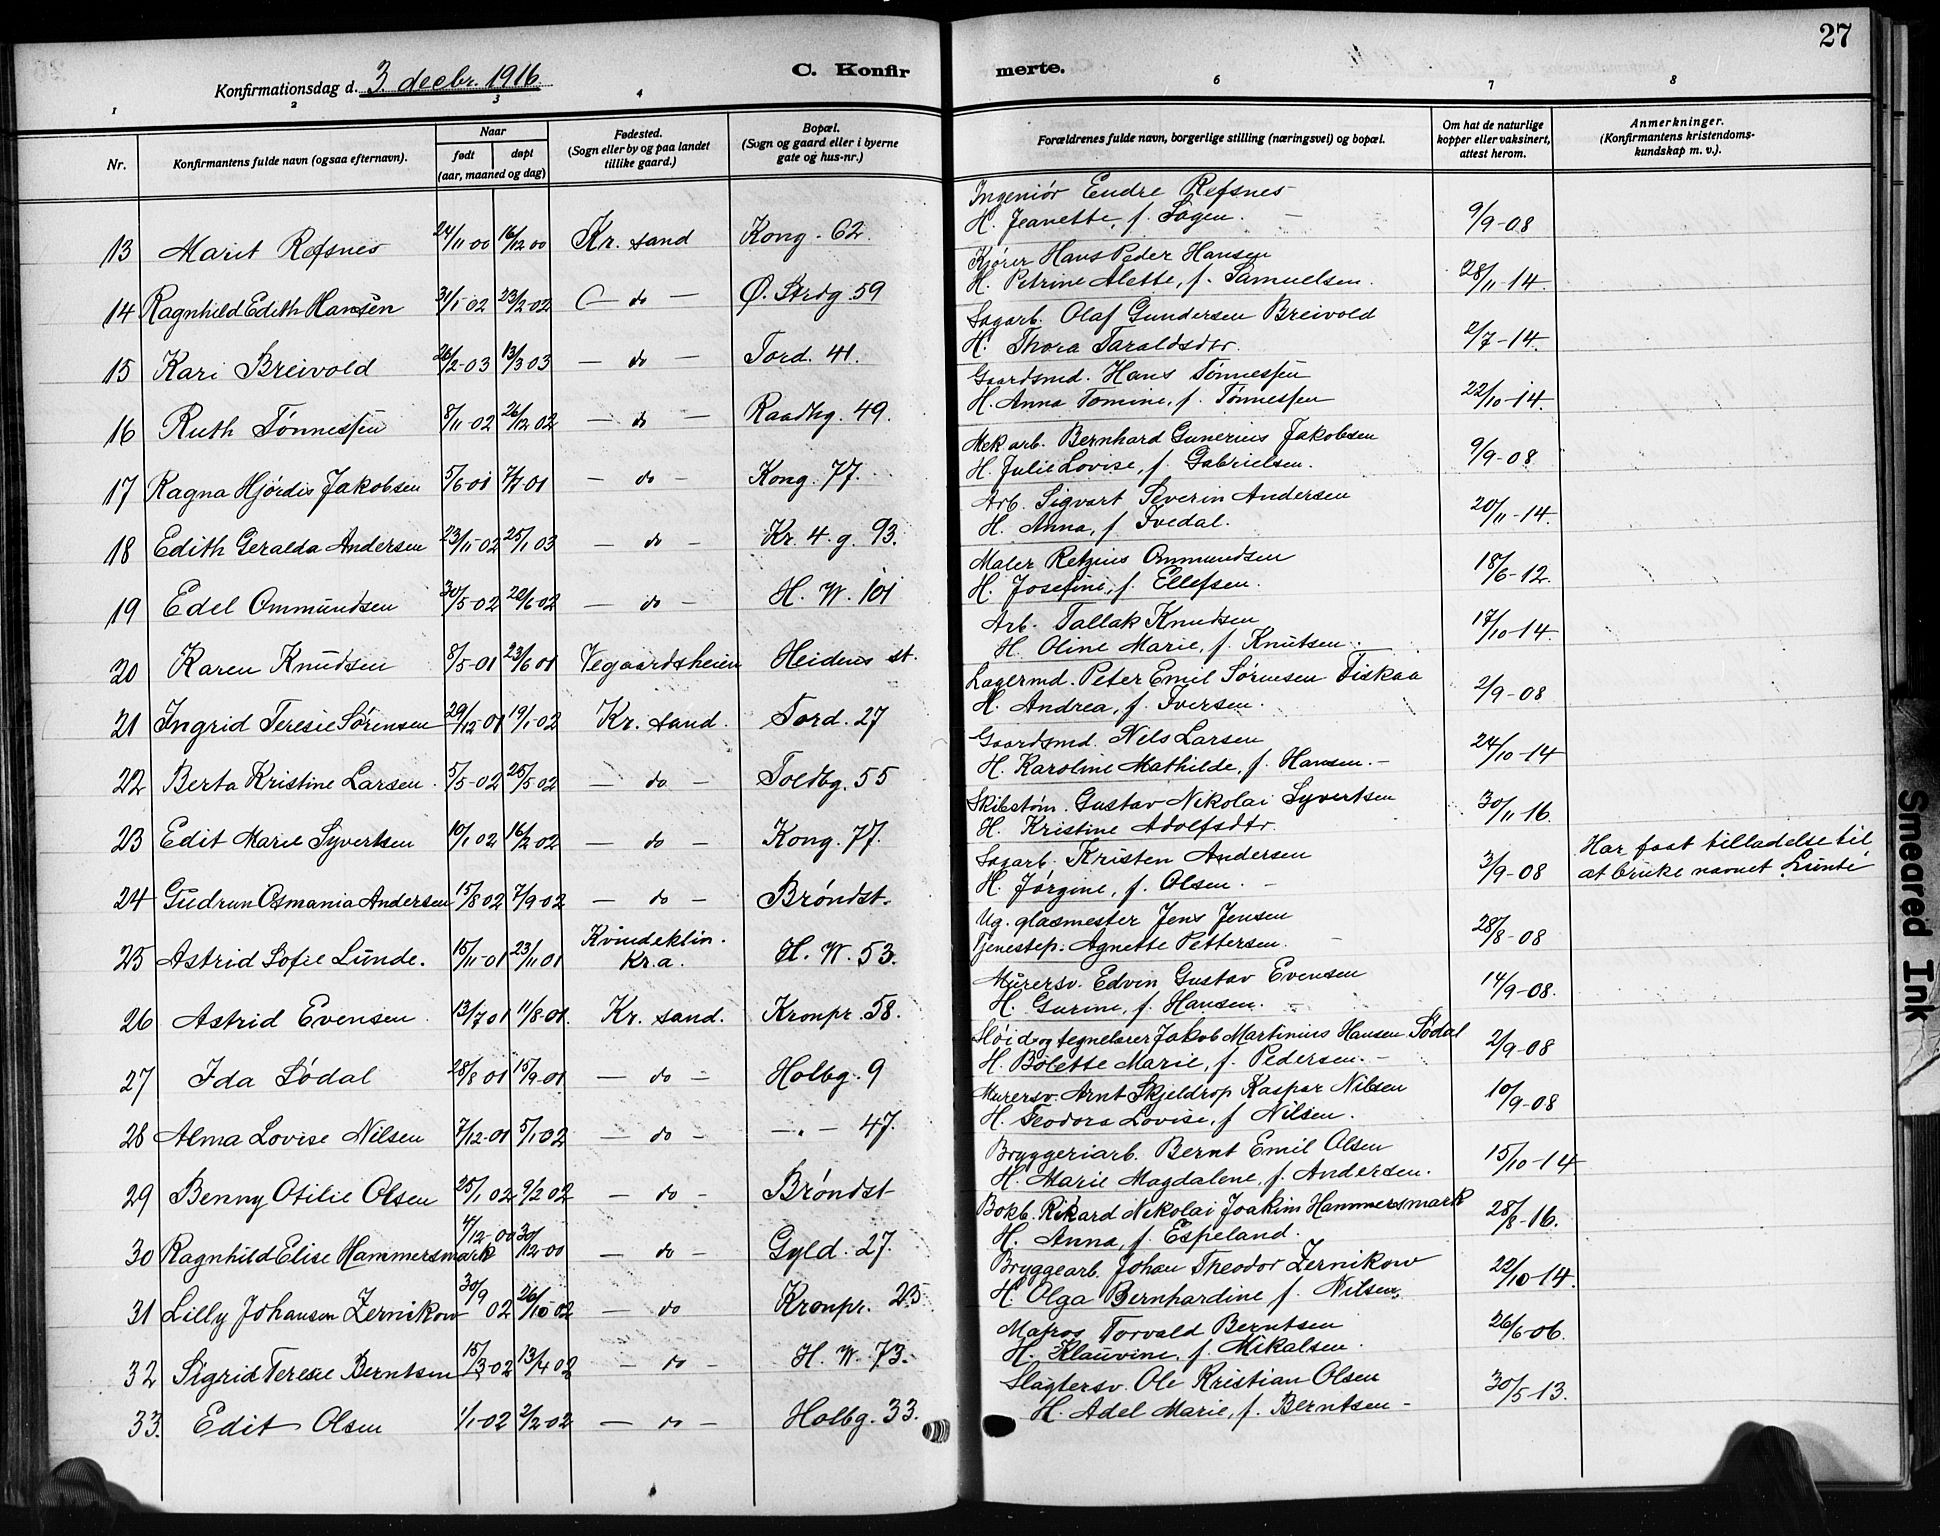 27
Konfirmationsdag d. 3. decbr. 1916. C. Konfir merte.
1 2 3 4 6 7 8
Nr. Konfirmantens fulde navn (ogsaa efternavn). Naar født døpt (aar, maaned og dag) Fødested. (Sogn eller by og paa landet tillike gaard.) Bopæl. (Sogn og gaard eller i byerne gate og hus-nr.) Forældrenes fulde navn, borgerlige stilling (næringsvei) og bopæl. Om hat de naturlige kopper eller vaksinert, attest herom. Anmerkninger. (Konfirmantens kristendoms-kundskap m. v.).
Ingeniør Endre Refsnes
13 Marit Refsnes 24/11 00 16/12 00 Kr. sand Kong. 62. H. Jeanette, f. Sagen. 9/9-08
Kjører Hans Peder Hansen
14 Ragnhild Edith Hansen 31/1-02 23/2-02 — do — Ø. Strdg 59 H. Petrine Alette, f. Samuelsen. 28/11-14.
Sagarb. Olaf Gundersen Breivold
15 Kari Breivold 26/2-03 13/3 03 — do — Tord. 41. H. Thora Taraldsdtr. 2/7-14.
Gaardsmd. Hans Tønnessen
16 Ruth Tønnessen 8/11-02 26/12 02 — do — Raadhg. 49. H. Anna Tomine, f. Tønnessen 22/10-14.
Mek arb. Bernhard Gunerius Jakobsen
17 Ragna Hjørdis Jakobsen 5/6-01 7/7-01 — do — Kong. 77. H. Julie Lovise, f. Gabrielsen. 9/9-08
Arb. Sigvart Severin Andersen
18 Edith Geralda Andersen 23/11-02 25/1 03 — do — Kr. 4. g. 93. H. Anna, f. Ivedal. 20/11-14.
Maler Retzius Ommundsen
19 Edel Ommundsen 30/5-02 22/6-02 — do — H. W. 101 H. Josefine, f. Ellefsen. 18/6-12.
Arb. Tallak Knudsen
20 Karen Knudsen 8/5-01 23/6 01 Vegaardsheien Heidens st. H. Oline Marie, f. Knutsen. 17/10-14
Lagermd. Peter Emil Sørensen Fiskaa
21 Ingrid Teresie Sørensen 29/12-01 19/1-02 Kr. sand. Tord. 27 H. Andrea, f. Iversen. 2/9-08
Gaardsmd. Nils Larsen
22 Berta Kristine Larsen. 5/5-02 25/5 02 — do — Toldbg. 55 H. Karoline Mathilde, f. Hansen. — 24/10-14
Skibstøm. Gustav Nikolai Syvertsen
23 Edit Marie Syvertsen 10/1 02 16/2-02 — do — Kong. 77. H. Kristine Adolfsdtr. 30/11 16.
Sagarb. Kristen Andersen
24 Gudrun Osmania Andersen 15/8 02 7/9-02 — do — Brøndst. H. Jørgine, f. Olsen. — 3/9-08
Har faat tilladelse til
at bruke navnet Lunde
Ug. glasmester Jens Jensen
25 Astrid Sofie Lunde. 15/11-01 23/11 01 Kvindeklin. Kr.a. H. W. 53. Tjenestep. Agnette Pettersen. 28/8-08
Murersv. Edvin Gustav Evensen
26 Astrid Evensen 13/7 01 11/8-01. Kr. sand. Kronpr. 58. H. Gurine, f. Hansen. 14/9-08.
Sløid og tegnelærer Jakob Martinius Hansen Sødal
27 Ida Sødal 28/8 01 15/9-01 — do — Holbg. 9 H. Bolette Marie, f. Pedersen. — 2/9-08
Murersv. Arnt Skjeldrop Kaspar Nilsen
28 Alma Lovise Nilsen 7/12-01 5/1-02 — do — — " — 47. H. Teodora Lovise, f. Nilsen. 10/9-08
Bryggeriarb. Bernt Emil Olsen
29 Benny Otilie Olsen 25/1 02 9/2 02 — do — Brøndst H. Marie Magdalene, f. Andersen. 15/10-14
Bokb. Rikard Nikolai Joakim Hammersmark
30 Ragnhild Elise Hammersmark 4/12-00 30/12-00 — do — Gyld. 27. H. Anna, f. Espeland. 28/8-16.
Bryggearb. Johan Theodor Zernikow
31 Lilly Johansen Zernikow 30/9 02 26/10 02 — do Kronpr. 25. H. Olga Bernhardine f. Nilsen. 22/10-14.
Matros Torvald Berntsen
32 Sigrid Teresie Berntsen 15/3-02 13/4 02 — do — H. W. 73. H. Klauvine, f. Mikalsen. 26/6-06.
Slagtersv. Ole Kristian Olsen
33. Edit Olsen 1/1-02 2/2-02 — do — Holbg. 33. H. Adel Marie, f. Berntsen — 30/5-13.
Smeared Ink